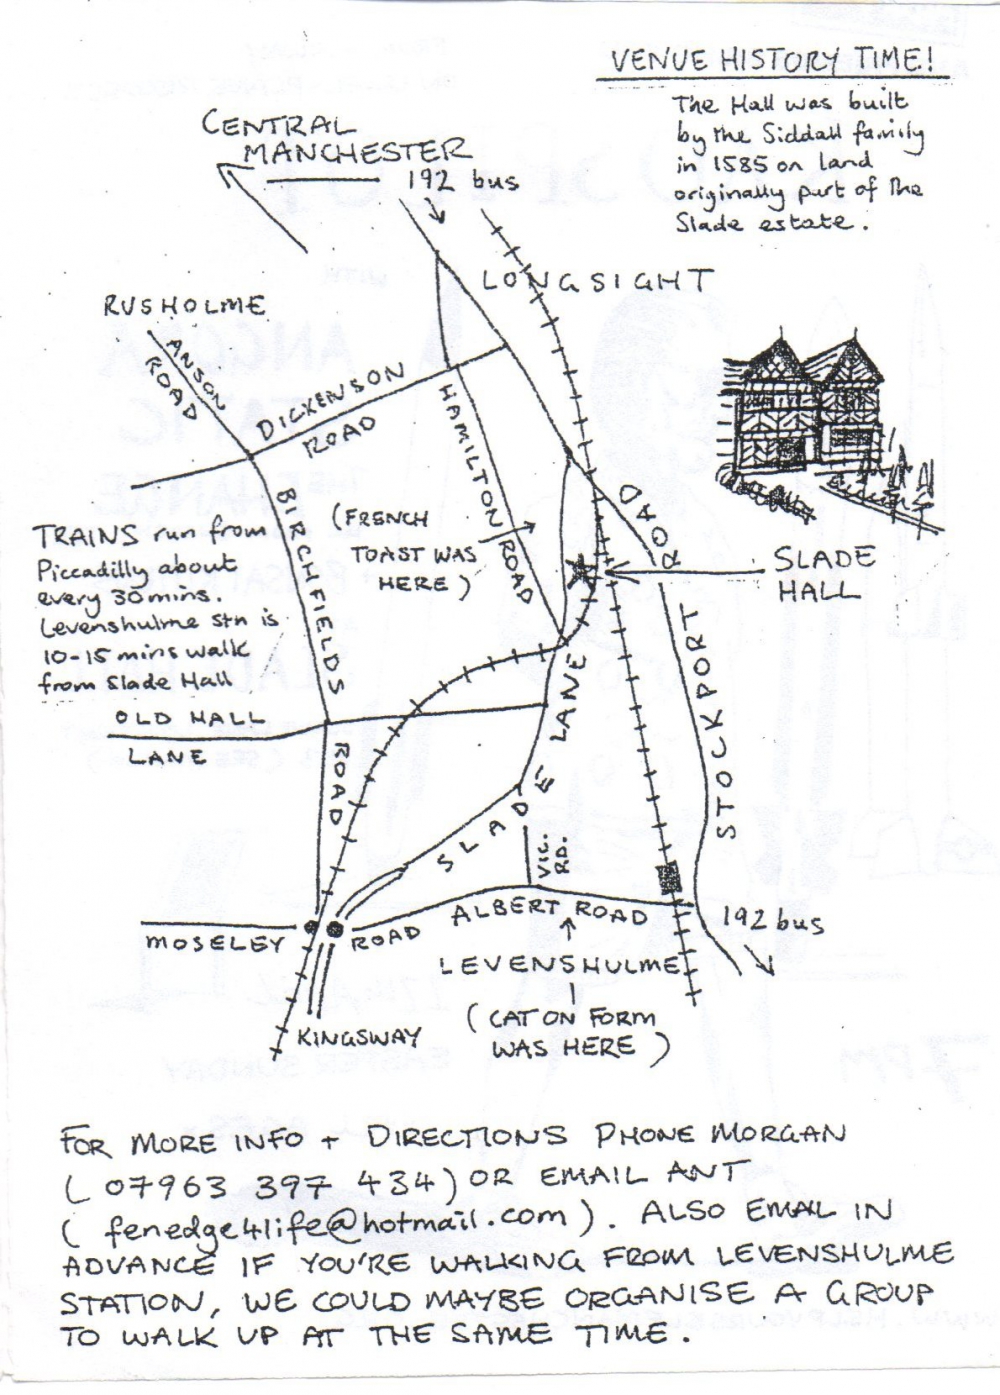 VENUE HISTORY TIME!
The Hall was built
by the Siddall family
in 1585 on land
originally part of the
Slade estate.
CENTRAL
MANCHESTER
192 bus
LONGSIGHT
RUSHOLME
ANSON
ROAD
DICKENSON
ROAD
HAMILTON ROAD
BIRCHFIELDS
ROAD
(FRENCH
TOAST WAS
HERE)
ROAD
SLADE
HALL
TRAINS run from
Piccadilly about
every 30mins.
Levenshulme stn is
10-15 mins walk
from Slade Hall
OLD HALL
LANE
SLADE LANE
STOCKPORT
VIC.
RD.
ALBERT ROAD
192 bus
MOSELEY ROAD
LEVENSHULME
KINGSWAY
(CAT ON FORM
WAS HERE)
FOR MORE INFO + DIRECTIONS PHONE MORGAN
(07963 397 434) OR EMAIL ANT
(fenedge4life@hotmail.com). ALSO EMAIL IN
ADVANCE IF YOU'RE WALKING FROM LEVENSHULME
STATION, WE COULD MAYBE ORGANISE A GROUP
TO WALK UP AT THE SAME TIME.